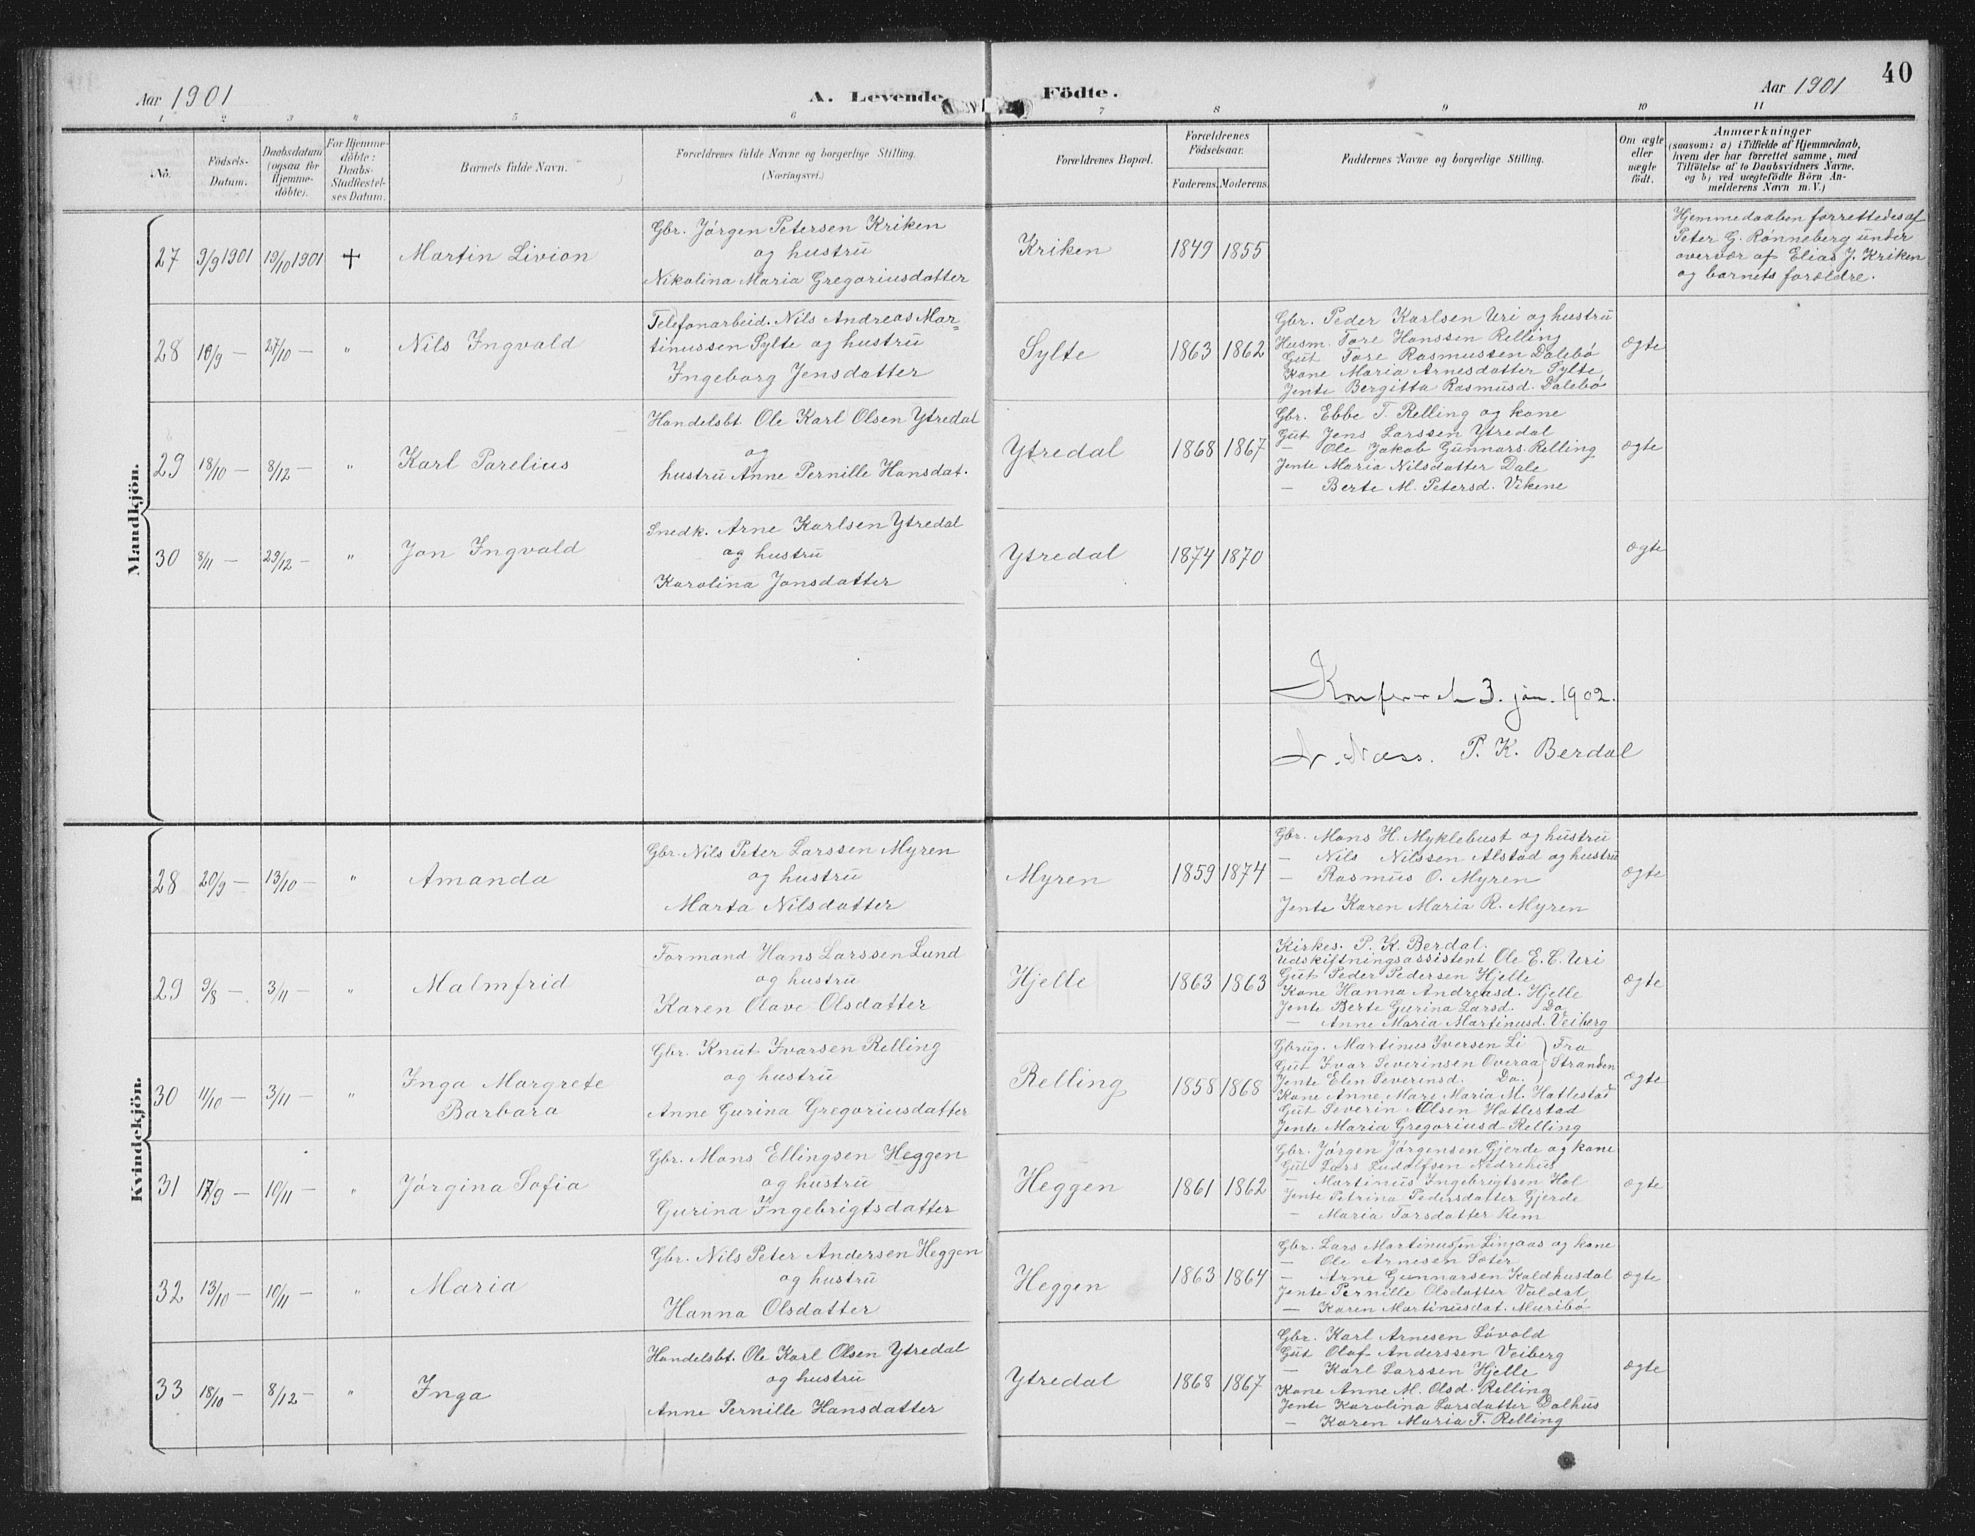 Aar 1901
A. Levende Födte.
Aar 1901
40
1 2 3 4 5 6 7 8 9 10 11
No.
Födsels-
Datum.
Daabsdatum
(ogsaa for
Hjemme-
döbte).
For Hjemme-
döbte:
Daabs-
Stadfæstel-
ses Datum.
Barnets fulde Navn.
Forældrenes fulde Navne og borgerlige Stilling.
(Næringsvei.)
Forældrenes Bopæl.
Forældrenes
Födselsaar.
Faderens. Moderens.
Faddernes Navne og borgerlige Stilling.
Om ægte
eller
uægte
födt.
Anmærkninger
(saasom: a) i Tilfælde af Hjemmedaab,
hvem der har forrettet samme, med
Tilföielse af to Daabsvidners Navne,
og b) ved uægtefödte Börn An-
melderens Navn m. V.)
Mandkjön.
27 9/9 1901 19/10 1901 + Martin Livion
Gbr. Jörgen Petersen Kriken
og hustru
Nikolina Maria Gregoriusdatter
Kriken 1849 1855
Hjemmedaaben forrettedes af
Peter G. Rønneberg under
overvær af Elias J. Kriken
og barnets forældre.
28 16/9 — 27/10 — " Nils Ingvald
Telefonarbeid. Nils Andreas Mar-
tinussen Sylte og hustru
Ingeborg Jensdatter
Sylte 1863 1862
Gbr. Peder Karlsen Uri og hustru
Husm. Tore Hanssen Relling
Gut Tore Rasmussen Dalebö
Kone Maria Arnesdatter Sylte
Jente Bergitta Rasmusd. Dalebö
ægte
29 18/10 — 8/12 — " Karl Parelius
Handelsbt. Ole Karl Olsen Ytredal
og
hustru Anne Pernille Hansdat.
Ytredal 1868 1867
Gbr. Ebbe T. Relling og kone
Gut Jens Larssen Ytredal
— Ole Jakob Gunnars. Relling
Jente Maria Nilsdatter Dale
— Berte M. Petersd. Vikene
ægte
30 8/11 — 29/12 — " Jon Ingvald
Snedk. Arne Karlsen Ytredal
og hustru
Karolina Jonsdatter
Ytredal 1874 1870
ægte
3. jan. 1902.
Næss. P. K. Berdal
Kvindekjön.
28 20/9 — 13/10 — " Amanda
Gbr. Nils Peter Larssen Myren
og hustru
Marta Nilsdatter
Myren 1859 1874
Gbr. Mons H. Myklebust og hustru
— Nils Nilssen Alstad og hustru
— Rasmus O. Myren
Jente Karen Maria R. Myren
ægte
29 9/8 — 3/11 — " Malmfrid
Formand Hans Larssen Lund
og hustru
Karen Olave Olsdatter
Hjelle 1863 1863
Kirkes. P. K. Berdal.
Udskiftningsassistent Ole E. C. Uri
Gut Peder Pedersen Hjelle
Kone Hanna Andreasd. Hjelle
Jente Berte Gurina Larsd. Do
— Anne Maria Martinusd. Veiberg
ægte
30 11/10 — 3/11 — " Inga Margrete
Barbara
Gbr. Knut Ivarsen Relling
og hustru
Anne Gurina Gregoriusdatter
Relling 1858 1868
Gbrug. Martinus Iversen Li } Fra
Gut Ivar Severinsen Overaa } Stranden
Jente Elen Severinsd. Do. }
Kone Anne Mare Maria M. Hatlestad
Gut Severin Olsen Hatlestad
Jente Maria Gregoriusd Relling
ægte
31 17/9 — 10/11 — " Jörgina Sofia
Gbr. Mons Ellingsen Heggen
og hustru
Gurina Ingebrigtsdatter
Heggen 1861 1862
Gbr. Jörgen Jörgensen Gjerde og kone
Gut Lars Ludolfsen Nedrehus
— Martinus Ingebrigtsen Hol
Jente Petrina Pedersdatter Gjerde
— Maria Torsdatter Rem
ægte
32 13/10 — 10/11 — " Maria
Gbr. Nils Peter Andersen Heggen
og hustru
Hanna Olsdatter
Heggen 1863 1864
Gbr. Lars Martinussen Lingaas og kone
— Ole Arnesen Sæter
— Arne Gunnarsen Kaldhusdal
Jente Pernille Olsdatter Valdal
— Karen Martinusdat. Muribö
ægte
33 18/10 — 8/12 — " Inga
Handelsbt. Ole Karl Olsen Ytredal
og hustru
Anne Pernille Hansdatter
Ytredal 1868 1867
Gbr. Karl Arnesen Lövold
Gut Olaf Anderssen Veiberg
— Karl Larssen Hjelle
Kone Anne M. Olsd. Relling
Jente Karolina Larsdatter Dalhus
— Karen Maria T. Relling
ægte